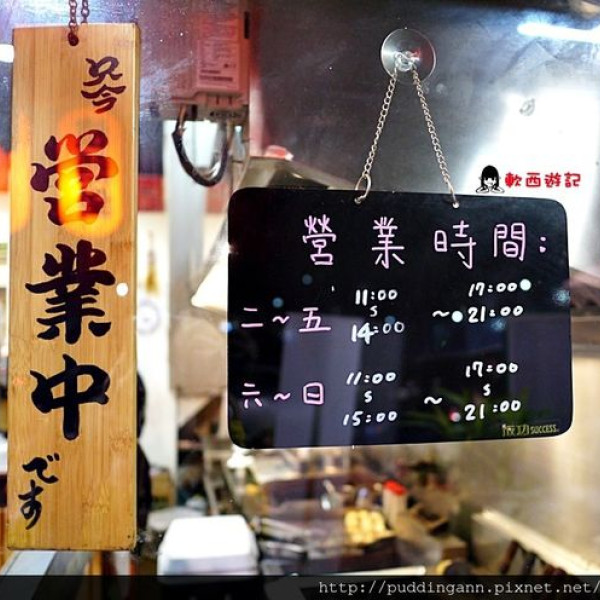 只今
営業中
です
軟西遊記
營業時間:
二~五 11:00 ~ 17:00
14:00 21:00
六~日 11:00 ~ 17:00
15:00 21:00
SUCCESS
http://puddingann.pixnet.net/